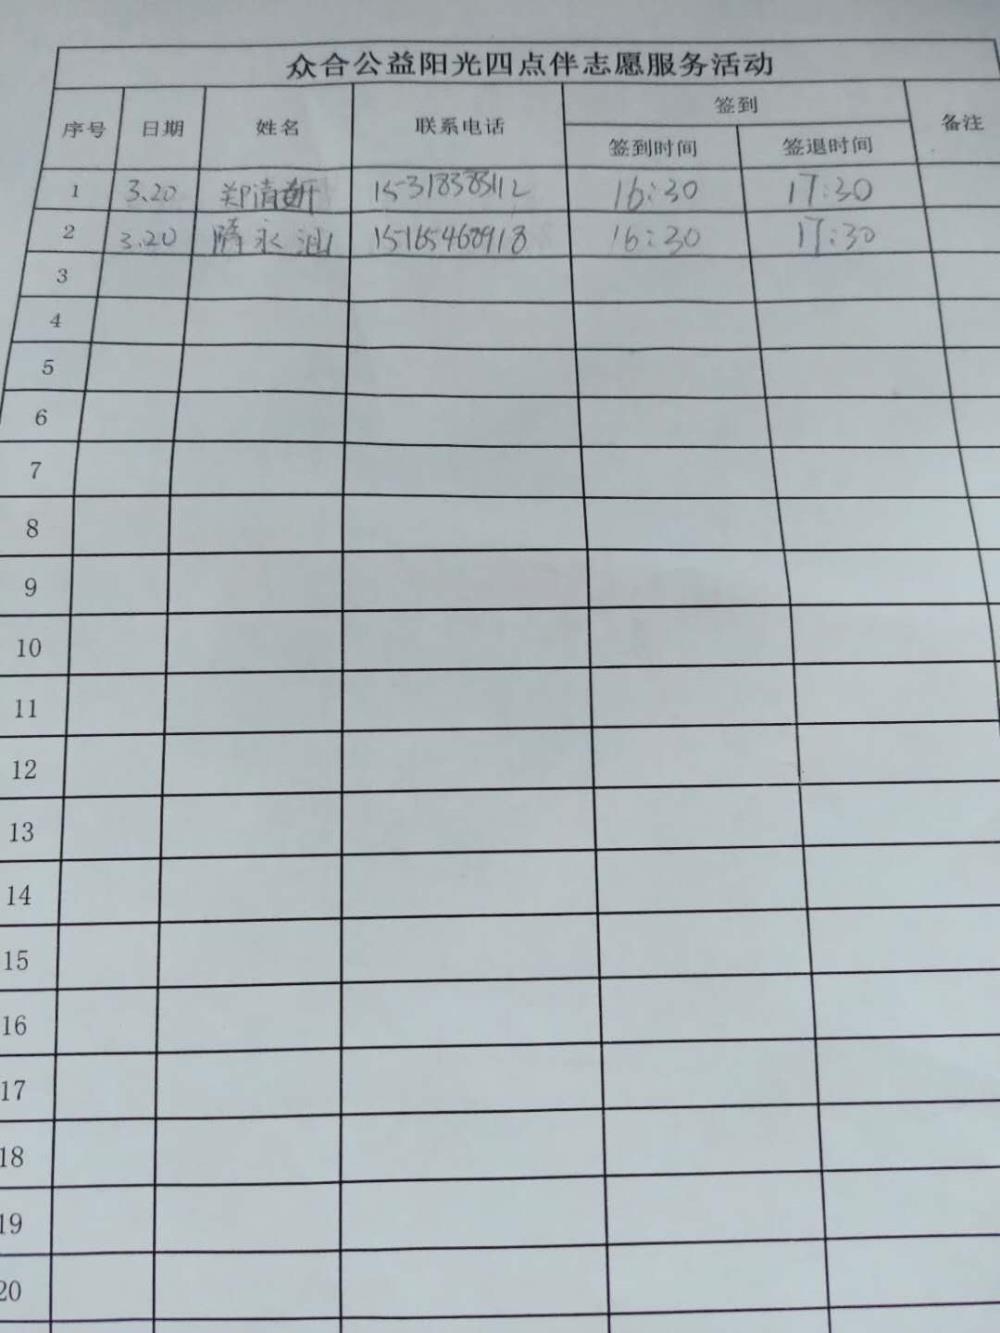 众合公益阳光四点伴志愿服务活动
序号 日期 姓名 联系电话 签到 备注
签到时间 签退时间
1 3.20 郑清妍 15318385112 16:30 17:30
2 3.20 隋永 15165468918 16:30 17:30
3
4
5
6
7
8
9
10
11
12
13
14
15
16
17
18
19
20